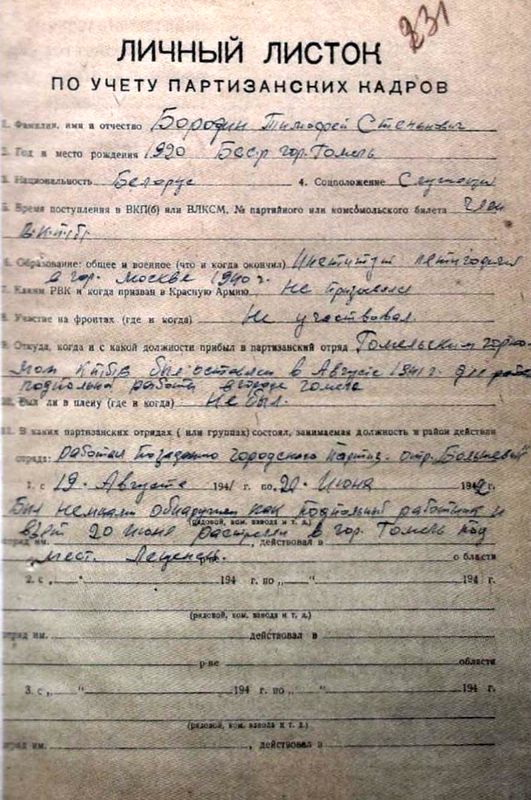 231
ЛИЧНЫЙ ЛИСТОК
ПО УЧЕТУ ПАРТИЗАНСКИХ КАДРОВ
1. Фамилия, имя и отчество Бородин Тимофей Степанович
2. Год и место рождения 1920 Бсср гор. Гомель
3. Национальность Беларус 4. Соцположение Служащий
5. Время поступления в ВКП(б) или ВЛКСМ, № партийного или комсомольского билета член
В.К.П.(б)
6. Образование: общее и военное (что и когда окончил) Институт
в гор. Москве 1940 г.
7. Каким РВК и когда призван в Красную Армию Не призвался
8. Участие на фронтах (где и когда) Не участвовал
9. Откуда, когда и с какой должности прибыл в партизанский отряд Гомельским горко-
мом КП(б)Б был оставлен в Августе 1941 г. для работы
подпольной работы в городе Гомеле
10. Был ли в плену (где и когда) Не был.
11. В каких партизанских отрядах (или группах) состоял, занимаемая должность и район действия
отряда: Работал по заданию городского партиз. отр. Большевик
1. с 19 Августа 1941 г. по 20 Июня 1942 г.
Был немцами обнаружен как подпольный работник и
(рядовой, ком. взвода и т. д.)
взят 20 июня расстрелян в гор. Гомель под
отряд им. , действовал в
мест. Лещенец.
р-не области
2. с „ “ 194 г. по „ “ 194 г.
(рядовой, ком. взвода и т. д.)
отряд им. действовал в
р-не области
3. с „ “ 194 г. по „ “ 194 г.
(рядовой, ком. взвода и т. д.)
отряд им. , действовал в